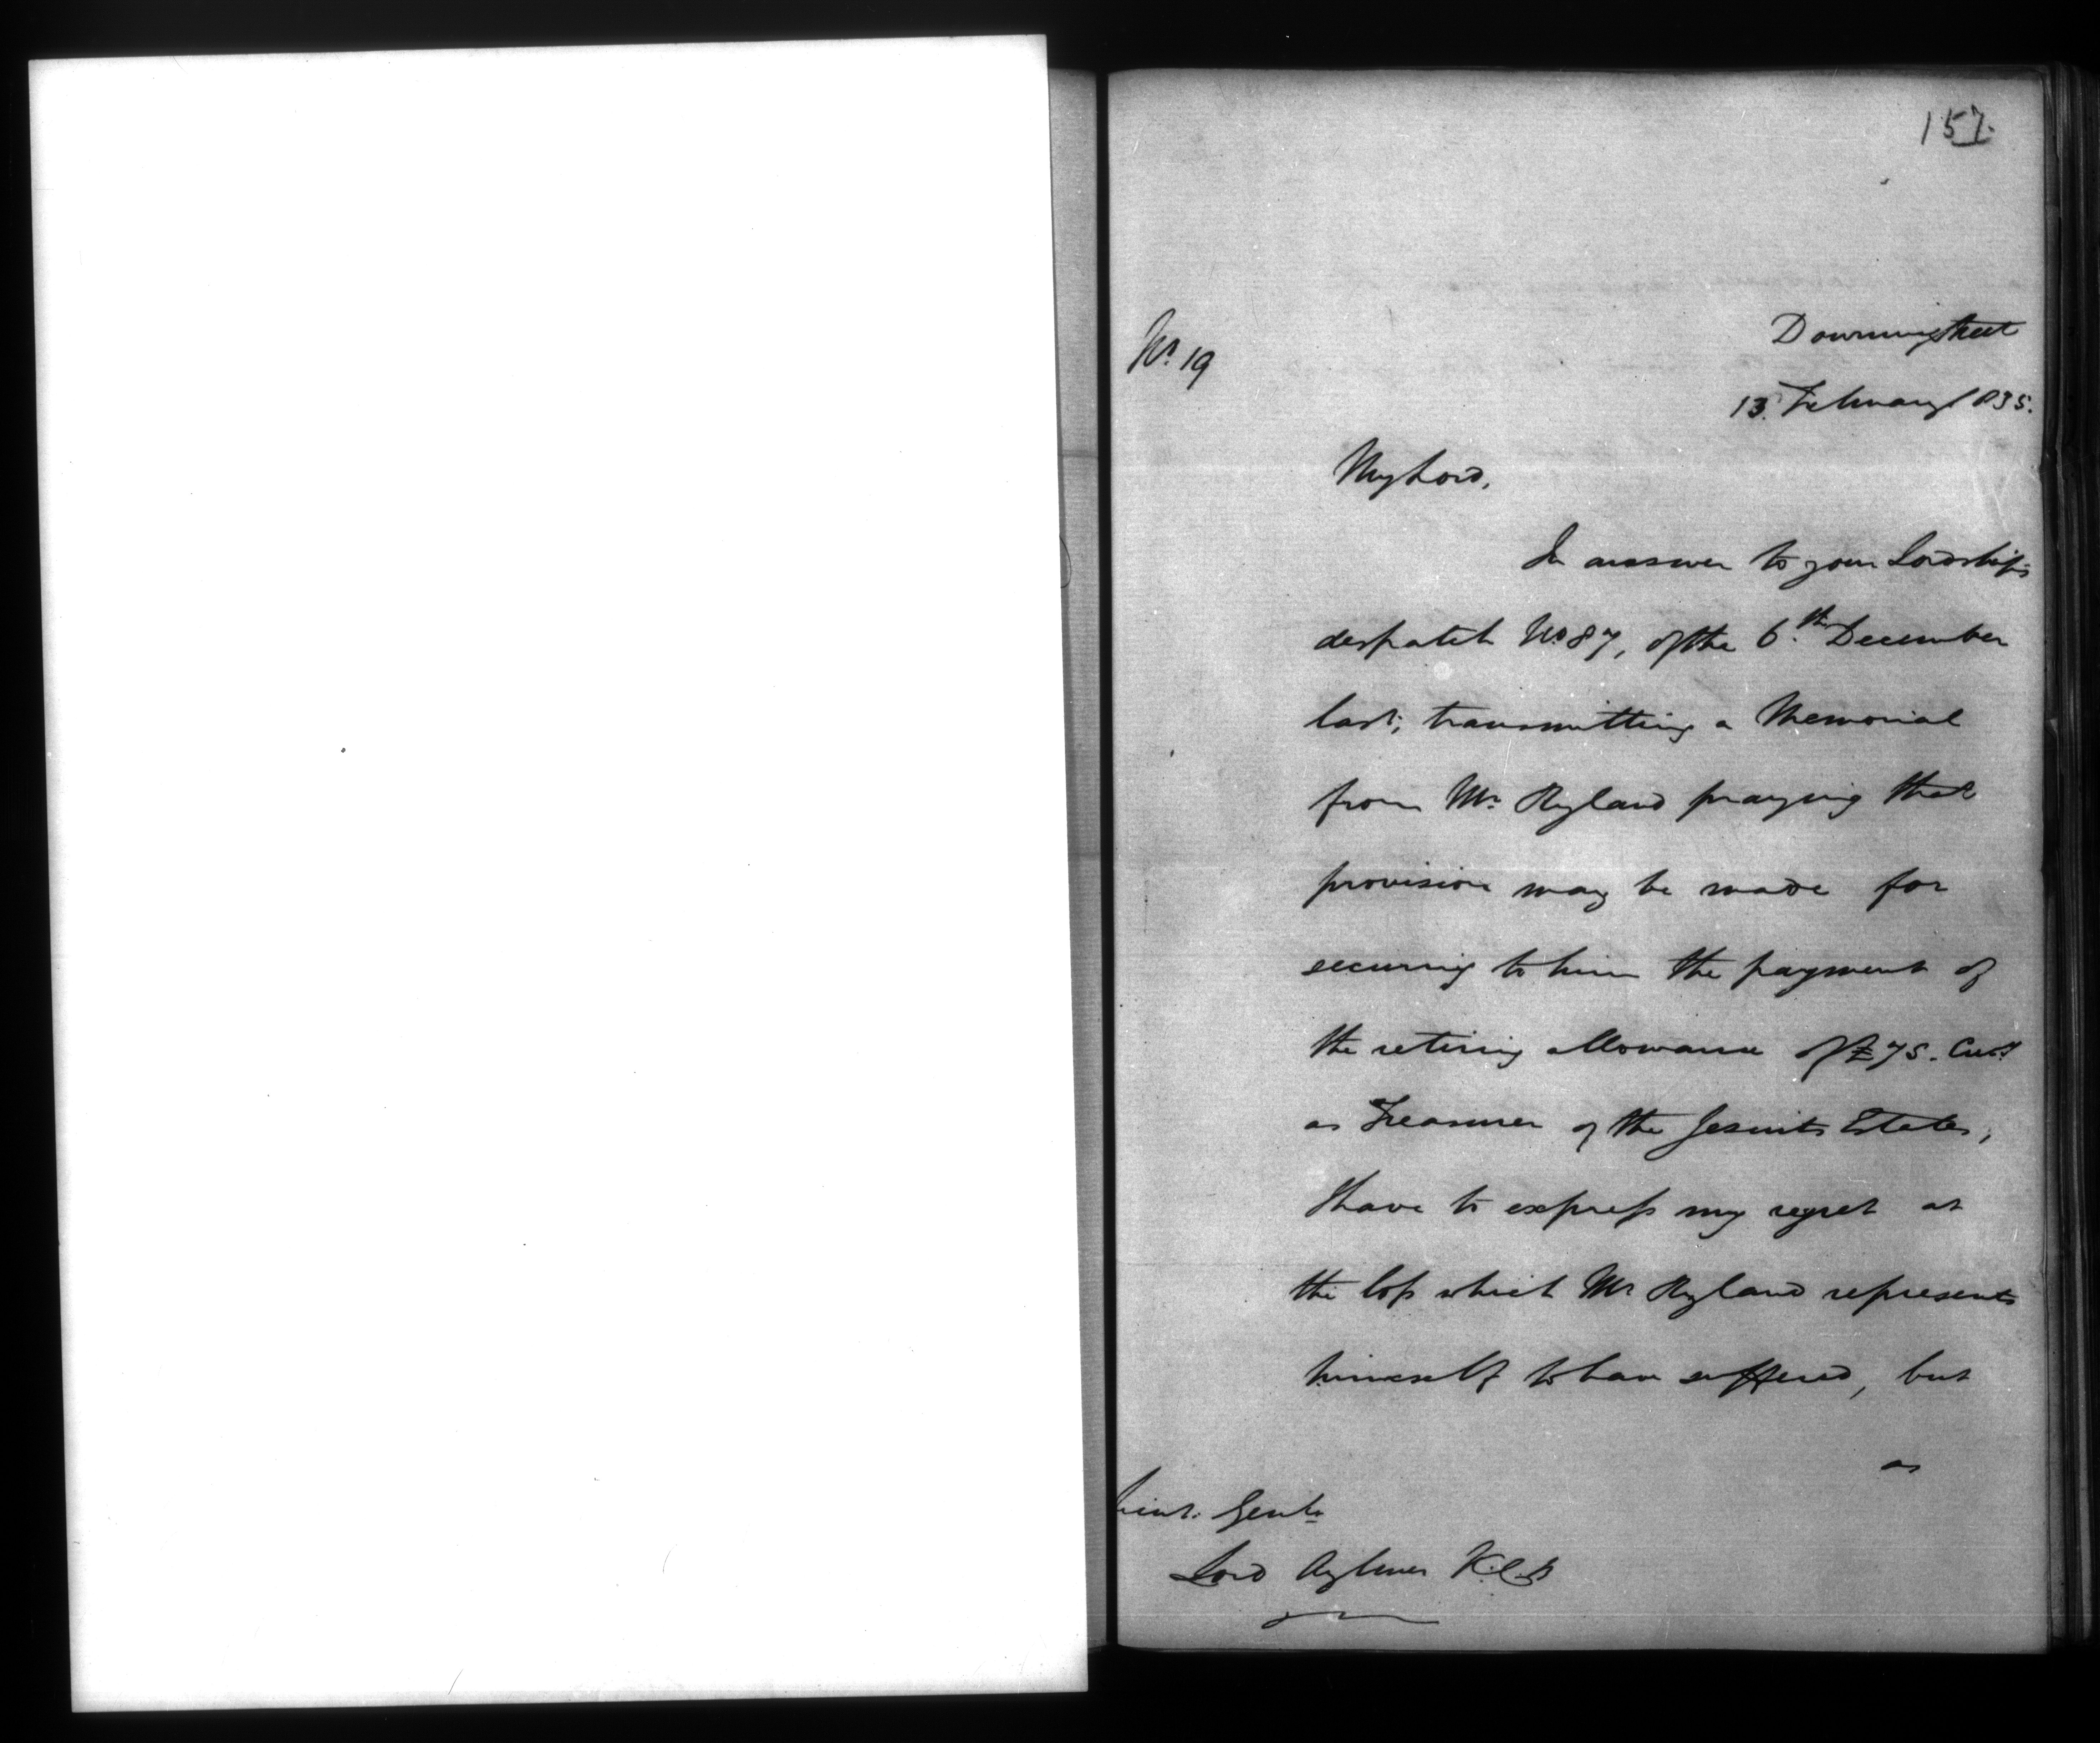 157.
No. 19
Downing Street
13. February 1835.
My Lord,
In answer to your Lordship's
despatch No. 87, of the 6th. December
last, transmitting a Memorial
from Mr. Ryland praying that
provision may be made for
securing to him the payment of
the retiring allowance of £75. Curry.
as Treasurer of the Jesuits Estates,
I have to express my regret at
the loss which Mr Ryland represents
himself to have suffered, but
as
Lieut. Genl.
Lord Aylmer K.C.B